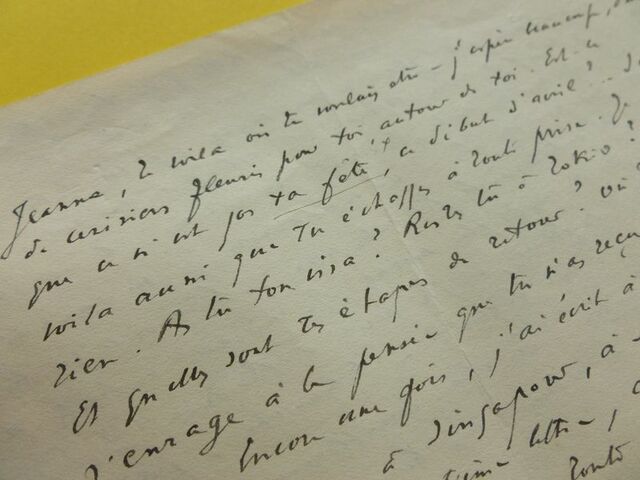 Jeanne, te voila où tu voulais être – j'espère beaucoup,
de cerisiers fleuris pour toi, autour de toi. Est-ce
que ce n'est pas ta fête, ce début d'avril? ...
voila aussi que tu échappes à toute prise. Je
rien. As tu ton visa? Restes tu à Tokio?
Et quelles sont tes étapes de retour? où
J'enrage à la pensée que tu n'as reçu
Encore une fois, j'ai écrit à
à Singapour, à
lettre,
toute